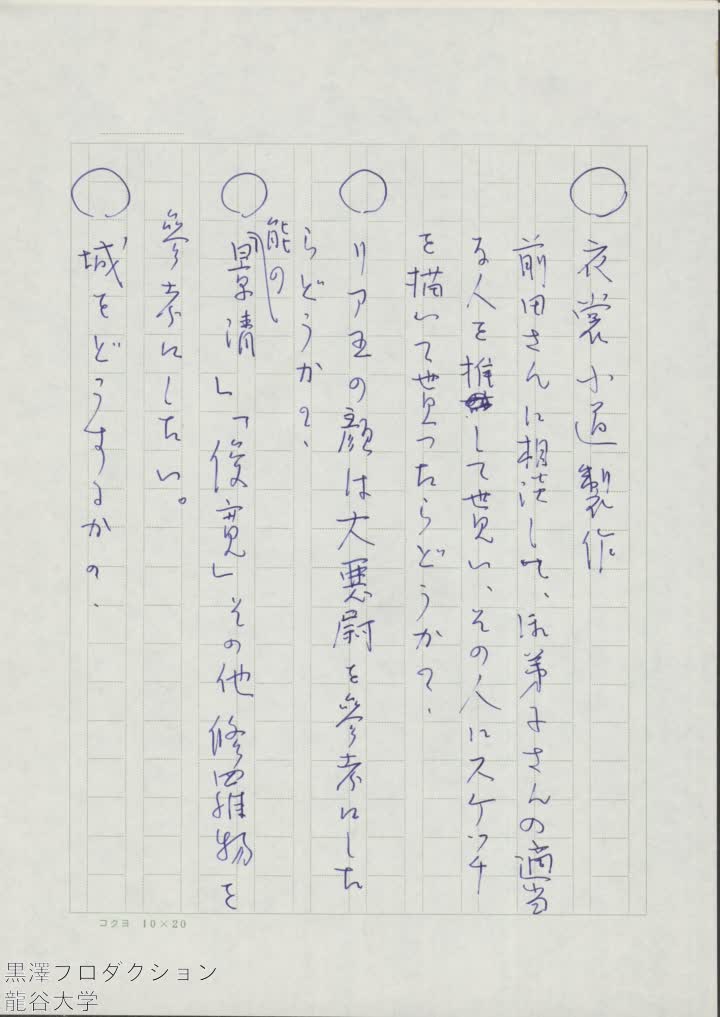 ○ 夜裳小道製作
前田さんに相談して、お弟子さんの適当
な人を推して貰い、その人にスケッチ
を描いて貰ったらどうか?、
○ リア王の顔は大悪尉を參考にした
らどうか?、
○ 能の「景清」「俊寛」その他 修羅物を
參考にしたい。
○ 城をどうするか?、
コクヨ 10×20
黒澤プロダクション
龍谷大学